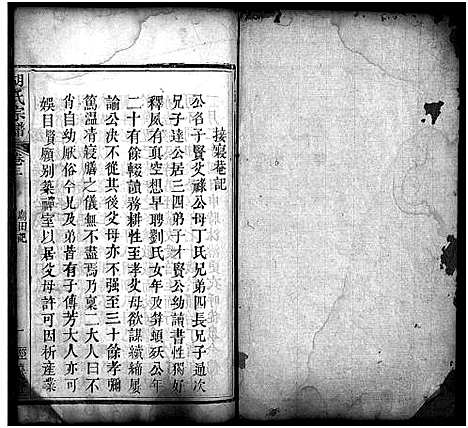 接裰巷記
公名子賢父祿公母丁氏兄弟四長兄子通次
兄子達公居三四弟子才賢公幼讀書性獨好
釋氣有真空想早聘劉氏女年及笄頓殀公年
二十有餘輟讀務耕性至孝父母欲謀續締屢
諭公決不從其後父母亦不強至三十餘孝彌
篤溫凊寢膳之儀無不盡焉乃稟二大人曰不
肖自幼厭俗今兄及弟皆有子傳芳大人亦可
娛目賢願別築禪室以居父母許可因析產業
胡氏宗譜
卷三
田記
一